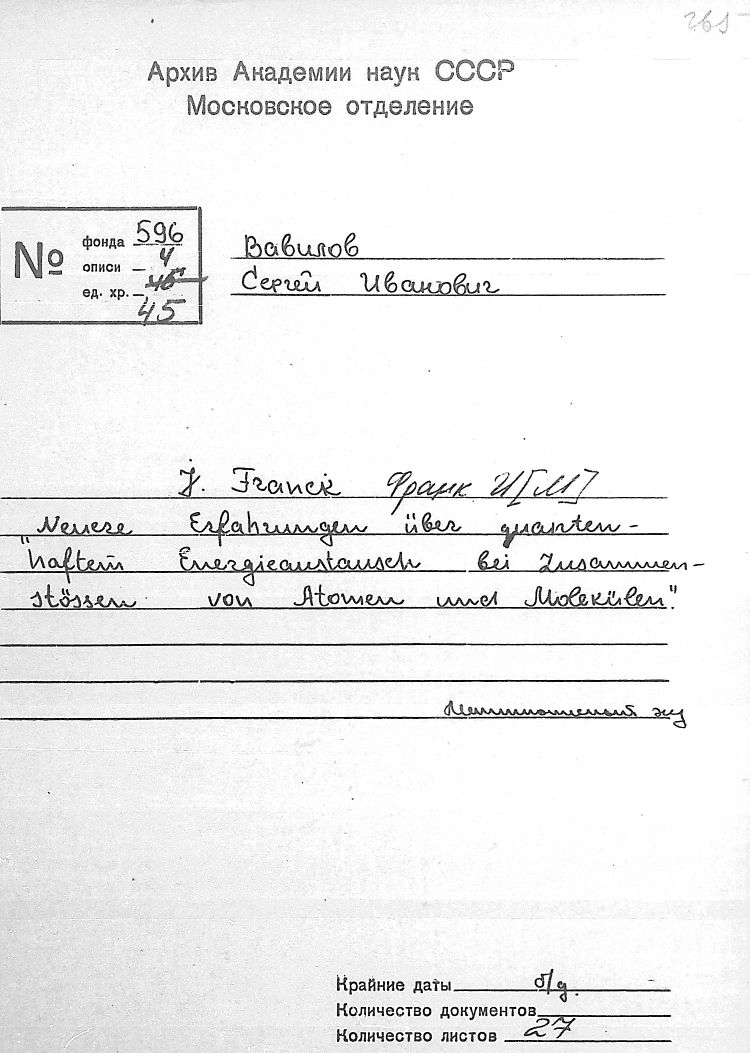 265
Архив Академии наук СССР
Московское отделение
№
фонда 596
описи 4
ед. хр. 45
45
Вавилов
Сергей Иванович
J. Franck Франк И[М]
"Neuere Erfahrungen über quanten-
haftem Energieaustausch bei Zusammen-
stössen von Atomen und Molekülen".
экз
Крайние даты б/д.
Количество документов
Количество листов 27